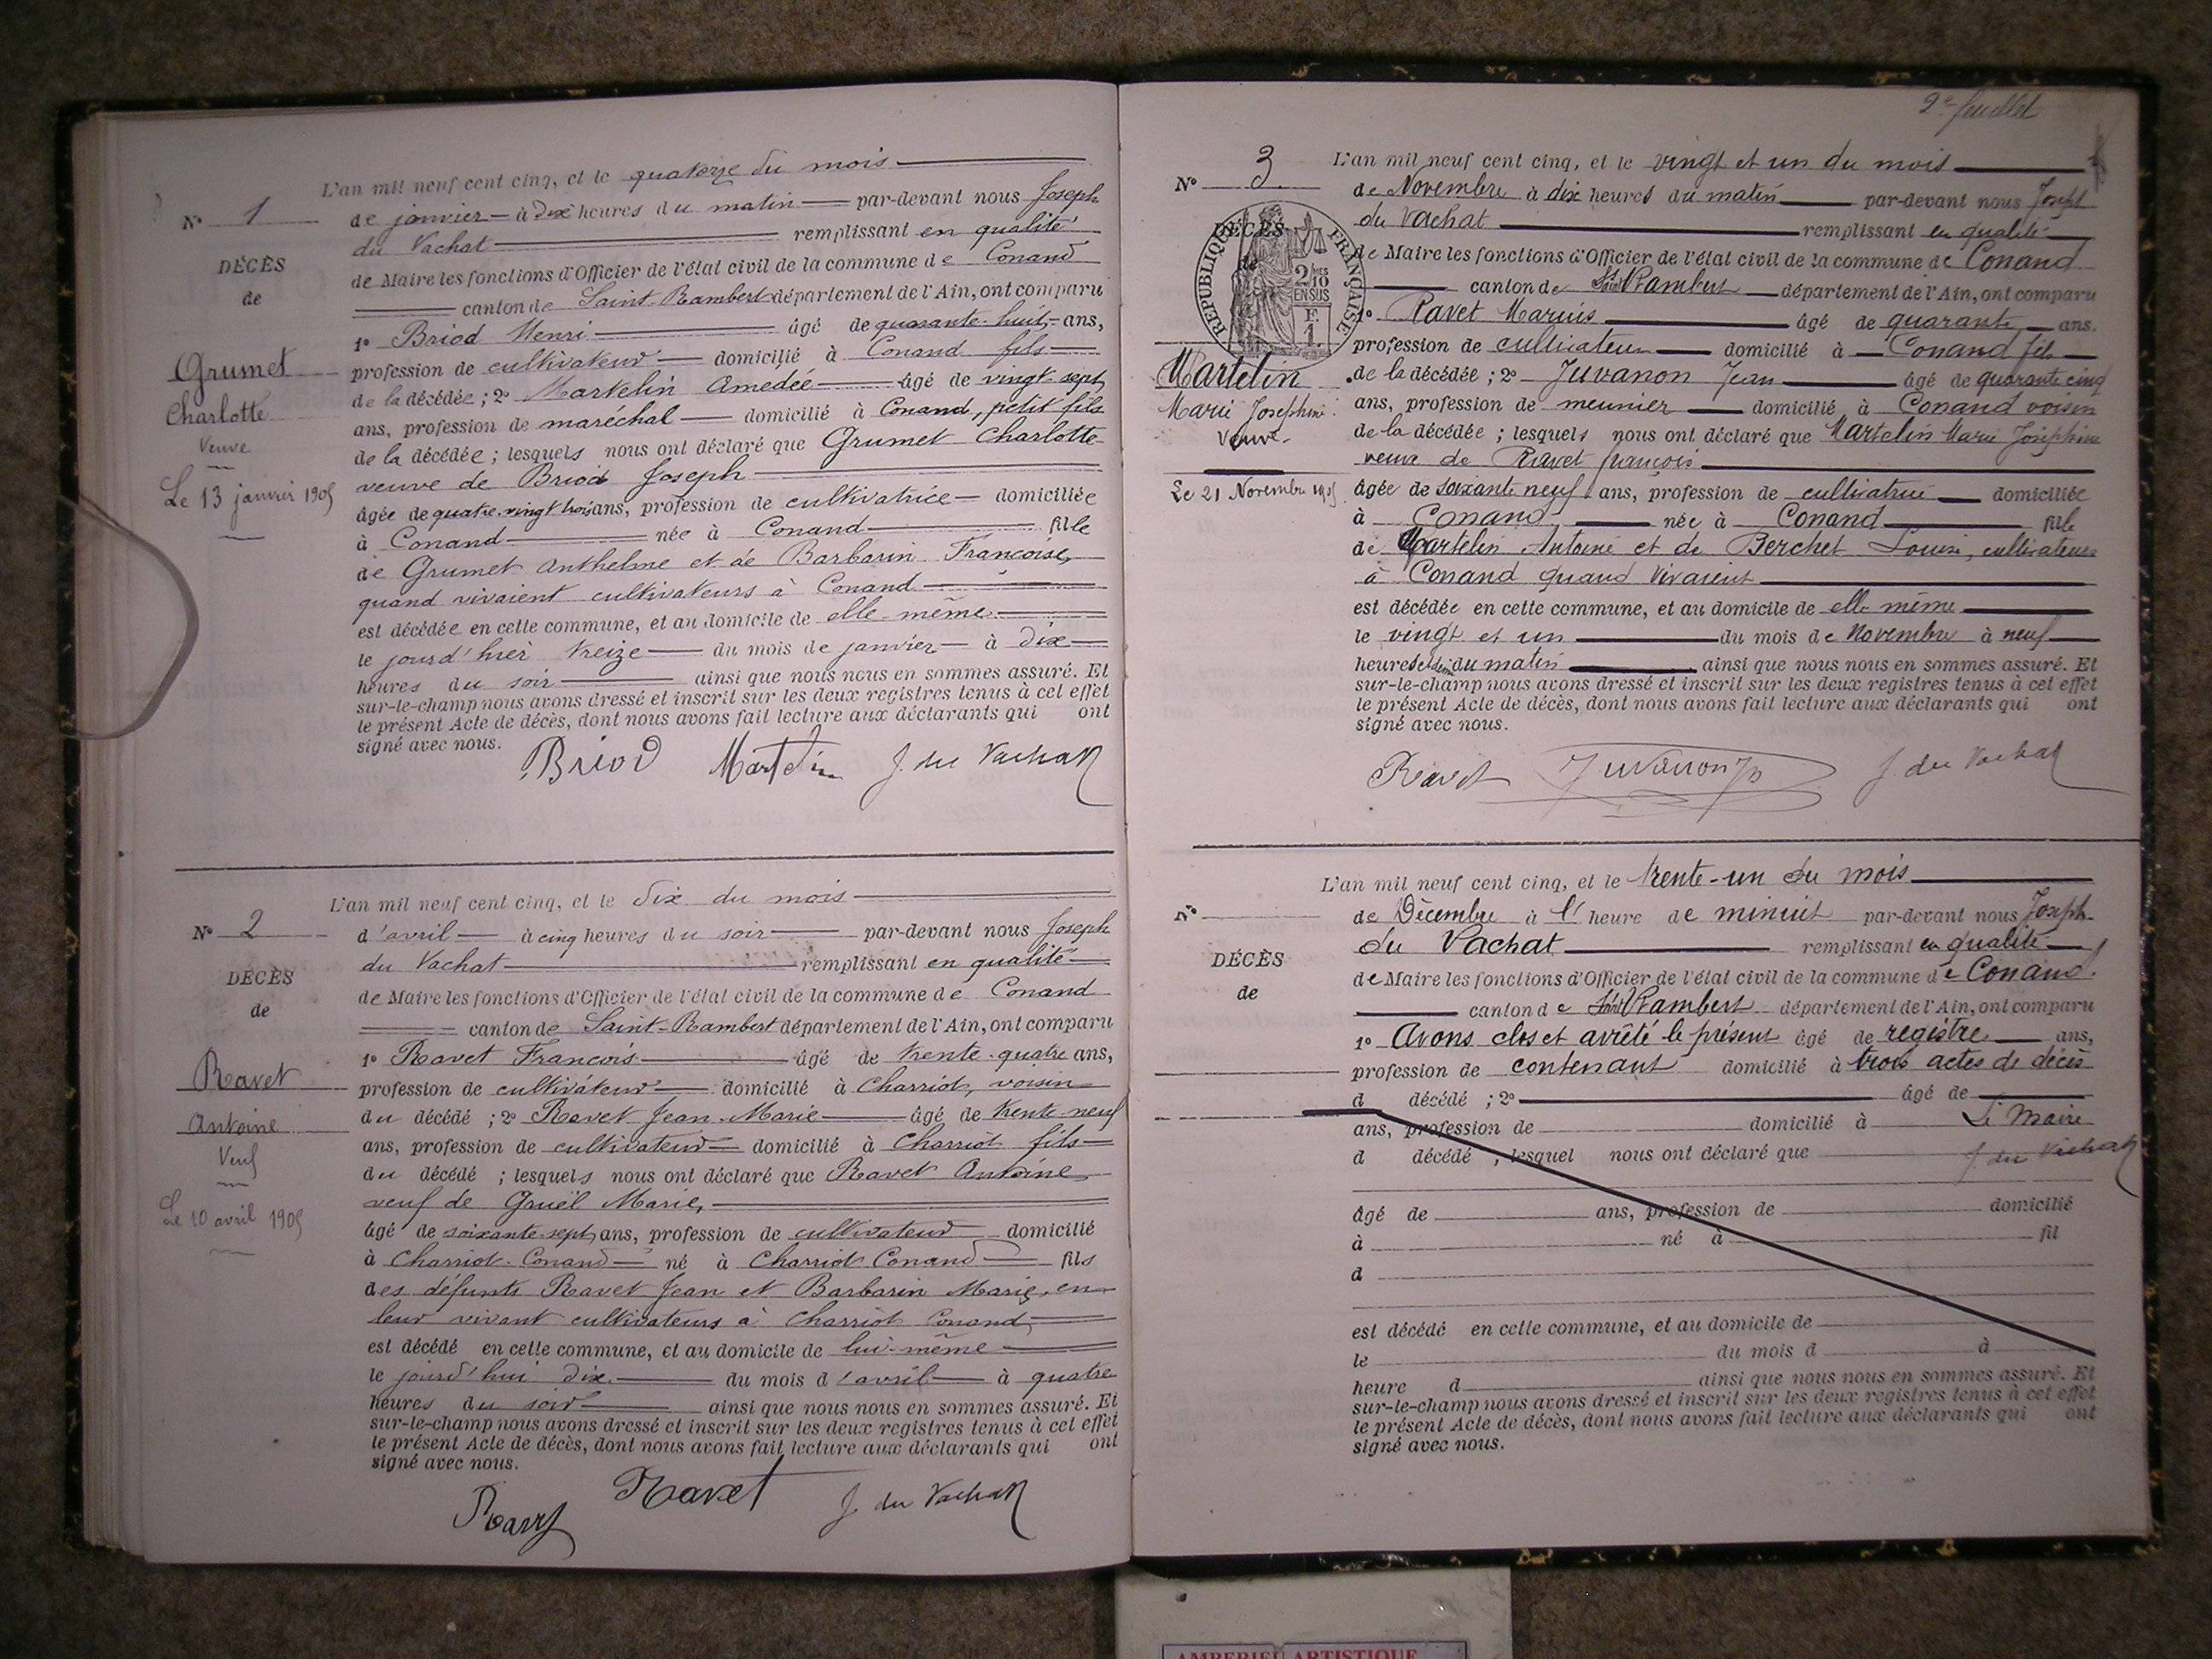 L'an mil neuf cent cinq, et le quatorze du mois
Nº 1
de janvier à dix heures du matin par-devant nous Joseph
du Vachat remplissant en qualité
DÉCÈS
de Maire les fonctions d'Officier de l'état civil de la commune de Conand
de
canton de Saint-Rambert département de l'Ain, ont comparu
1º Briod Henri âgé de quarante-huit ans,
Grumet
profession de cultivateur domicilié à Conand fils
de la décédée ; 2º Martelin Amedée âgé de vingt sept
Charlotte
ans, profession de maréchal domicilié à Conand, petit fils
Veuve
de la décédée ; lesquels nous ont déclaré que Grumet Charlotte
Le 13 janvier 1905
veuve de Briod Joseph
âgée de quatre-vingt trois ans, profession de cultivatrice domiciliée
à Conand née à Conand fille
de Grumet Anthelme et de Barbarin Francoise,
quand vivaient cultivateurs à Conand
est décédée en cette commune, et au domicile de elle-même
le jourd'hier treize du mois de janvier à dix
heures du soir ainsi que nous nous en sommes assuré. Et
sur-le-champ nous avons dressé et inscrit sur les deux registres tenus à cet effet
le présent Acte de décès, dont nous avons fait lecture aux déclarants qui ont
signé avec nous.
Briod Martelin J. du Vachat
L'an mil neuf cent cinq, et le dix du mois
Nº 2
d'avril à cinq heures du soir par-devant nous Joseph
du Vachat remplissant en qualité
DÉCÈS
de Maire les fonctions d'Officier de l'état civil de la commune de Conand
de
canton de Saint-Rambert département de l'Ain, ont comparu
1º Ravet Francois âgé de trente-quatre ans,
Ravet
profession de cultivateur domicilié à Charriot, voisin
Antoine
du décédé ; 2º Ravet Jean-Marie âgé de trente-neuf
ans, profession de cultivateur domicilié à Charriot fils
Veuf
du décédé ; lesquels nous ont déclaré que Ravet Antoine
Le 10 avril 1905
veuf de Gruel Marie,
âgé de soixante-sept ans, profession de cultivateur domicilié
à Charriot-Conand né à Charriot Conand fils
des défunts Ravet Jean et Barbarin Marie, en
leur vivant cultivateurs à Charriot Conand
est décédé en cette commune, et au domicile de lui-même
le jourd'hui dix du mois d'avril à quatre
heures du soir ainsi que nous nous en sommes assuré. Et
sur-le-champ nous avons dressé et inscrit sur les deux registres tenus à cet effet
le présent Acte de décès, dont nous avons fait lecture aux déclarants qui ont
signé avec nous.
Ravet Ravet J. du Vachat
2e feuillet
L'an mil neuf cent cinq, et le vingt et un du mois
Nº 3
de Novembre à dix heures du matin par-devant nous Joseph
du Vachat remplissant en qualité
DÉCÈS
de
RÉPUBLIQUE FRANÇAISE
2/10 EN SUS
F. 1
de Maire les fonctions d'Officier de l'état civil de la commune de Conand
canton de St Rambert département de l'Ain, ont comparu
1º Ravet Marius âgé de quarante ans.
profession de cultivateur domicilié à Conand fils
Martelin
de la décédée ; 2º Juvanon Jean âgé de quarante cinq
Marie Josephine
ans, profession de meunier domicilié à Conand voisin
Veuve
de la décédée ; lesquels nous ont déclaré que Martelin Marie Joséphine
veuve de Ravet françois
Le 21 Novembre 1905
âgée de soixante neuf ans, profession de cultivatrice domiciliée
à Conand née à Conand fille
de Martelin Antoine et de Berchet Louise, cultivateurs
à Conand quand vivaient
est décédée en cette commune, et au domicile de elle même
le vingt et un du mois de Novembre à neuf
heures du matin ainsi que nous nous en sommes assuré. Et
sur-le-champ nous avons dressé et inscrit sur les deux registres tenus à cet effet
le présent Acte de décès, dont nous avons fait lecture aux déclarants qui ont
signé avec nous.
Ravet Juvanon J. du Vachat
L'an mil neuf cent cinq, et le trente-un du mois
Nº
de Décembre à l' heure de minuit par-devant nous Joseph
du Vachat remplissant en qualité
DÉCÈS
de Maire les fonctions d'Officier de l'état civil de la commune de Conand
de
canton de St Rambert département de l'Ain, ont comparu
1º Avons clos et arrêté le présent âgé de registre ans,
profession de contenant domicilié à trois actes de décès
d décédé ; 2º âgé de
ans, profession de domicilié à Le Maire
d décédé ; lesquel nous ont déclaré que J. du Vachat
âgé de ans, profession de domicilié
à né à fil
d
est décédé en cette commune, et au domicile de
le du mois d à
heure d ainsi que nous nous en sommes assuré. Et
sur-le-champ nous avons dressé et inscrit sur les deux registres tenus à cet effet
le présent Acte de décès, dont nous avons fait lecture aux déclarants qui ont
signé avec nous.
AMBERIEU ARTISTIQUE